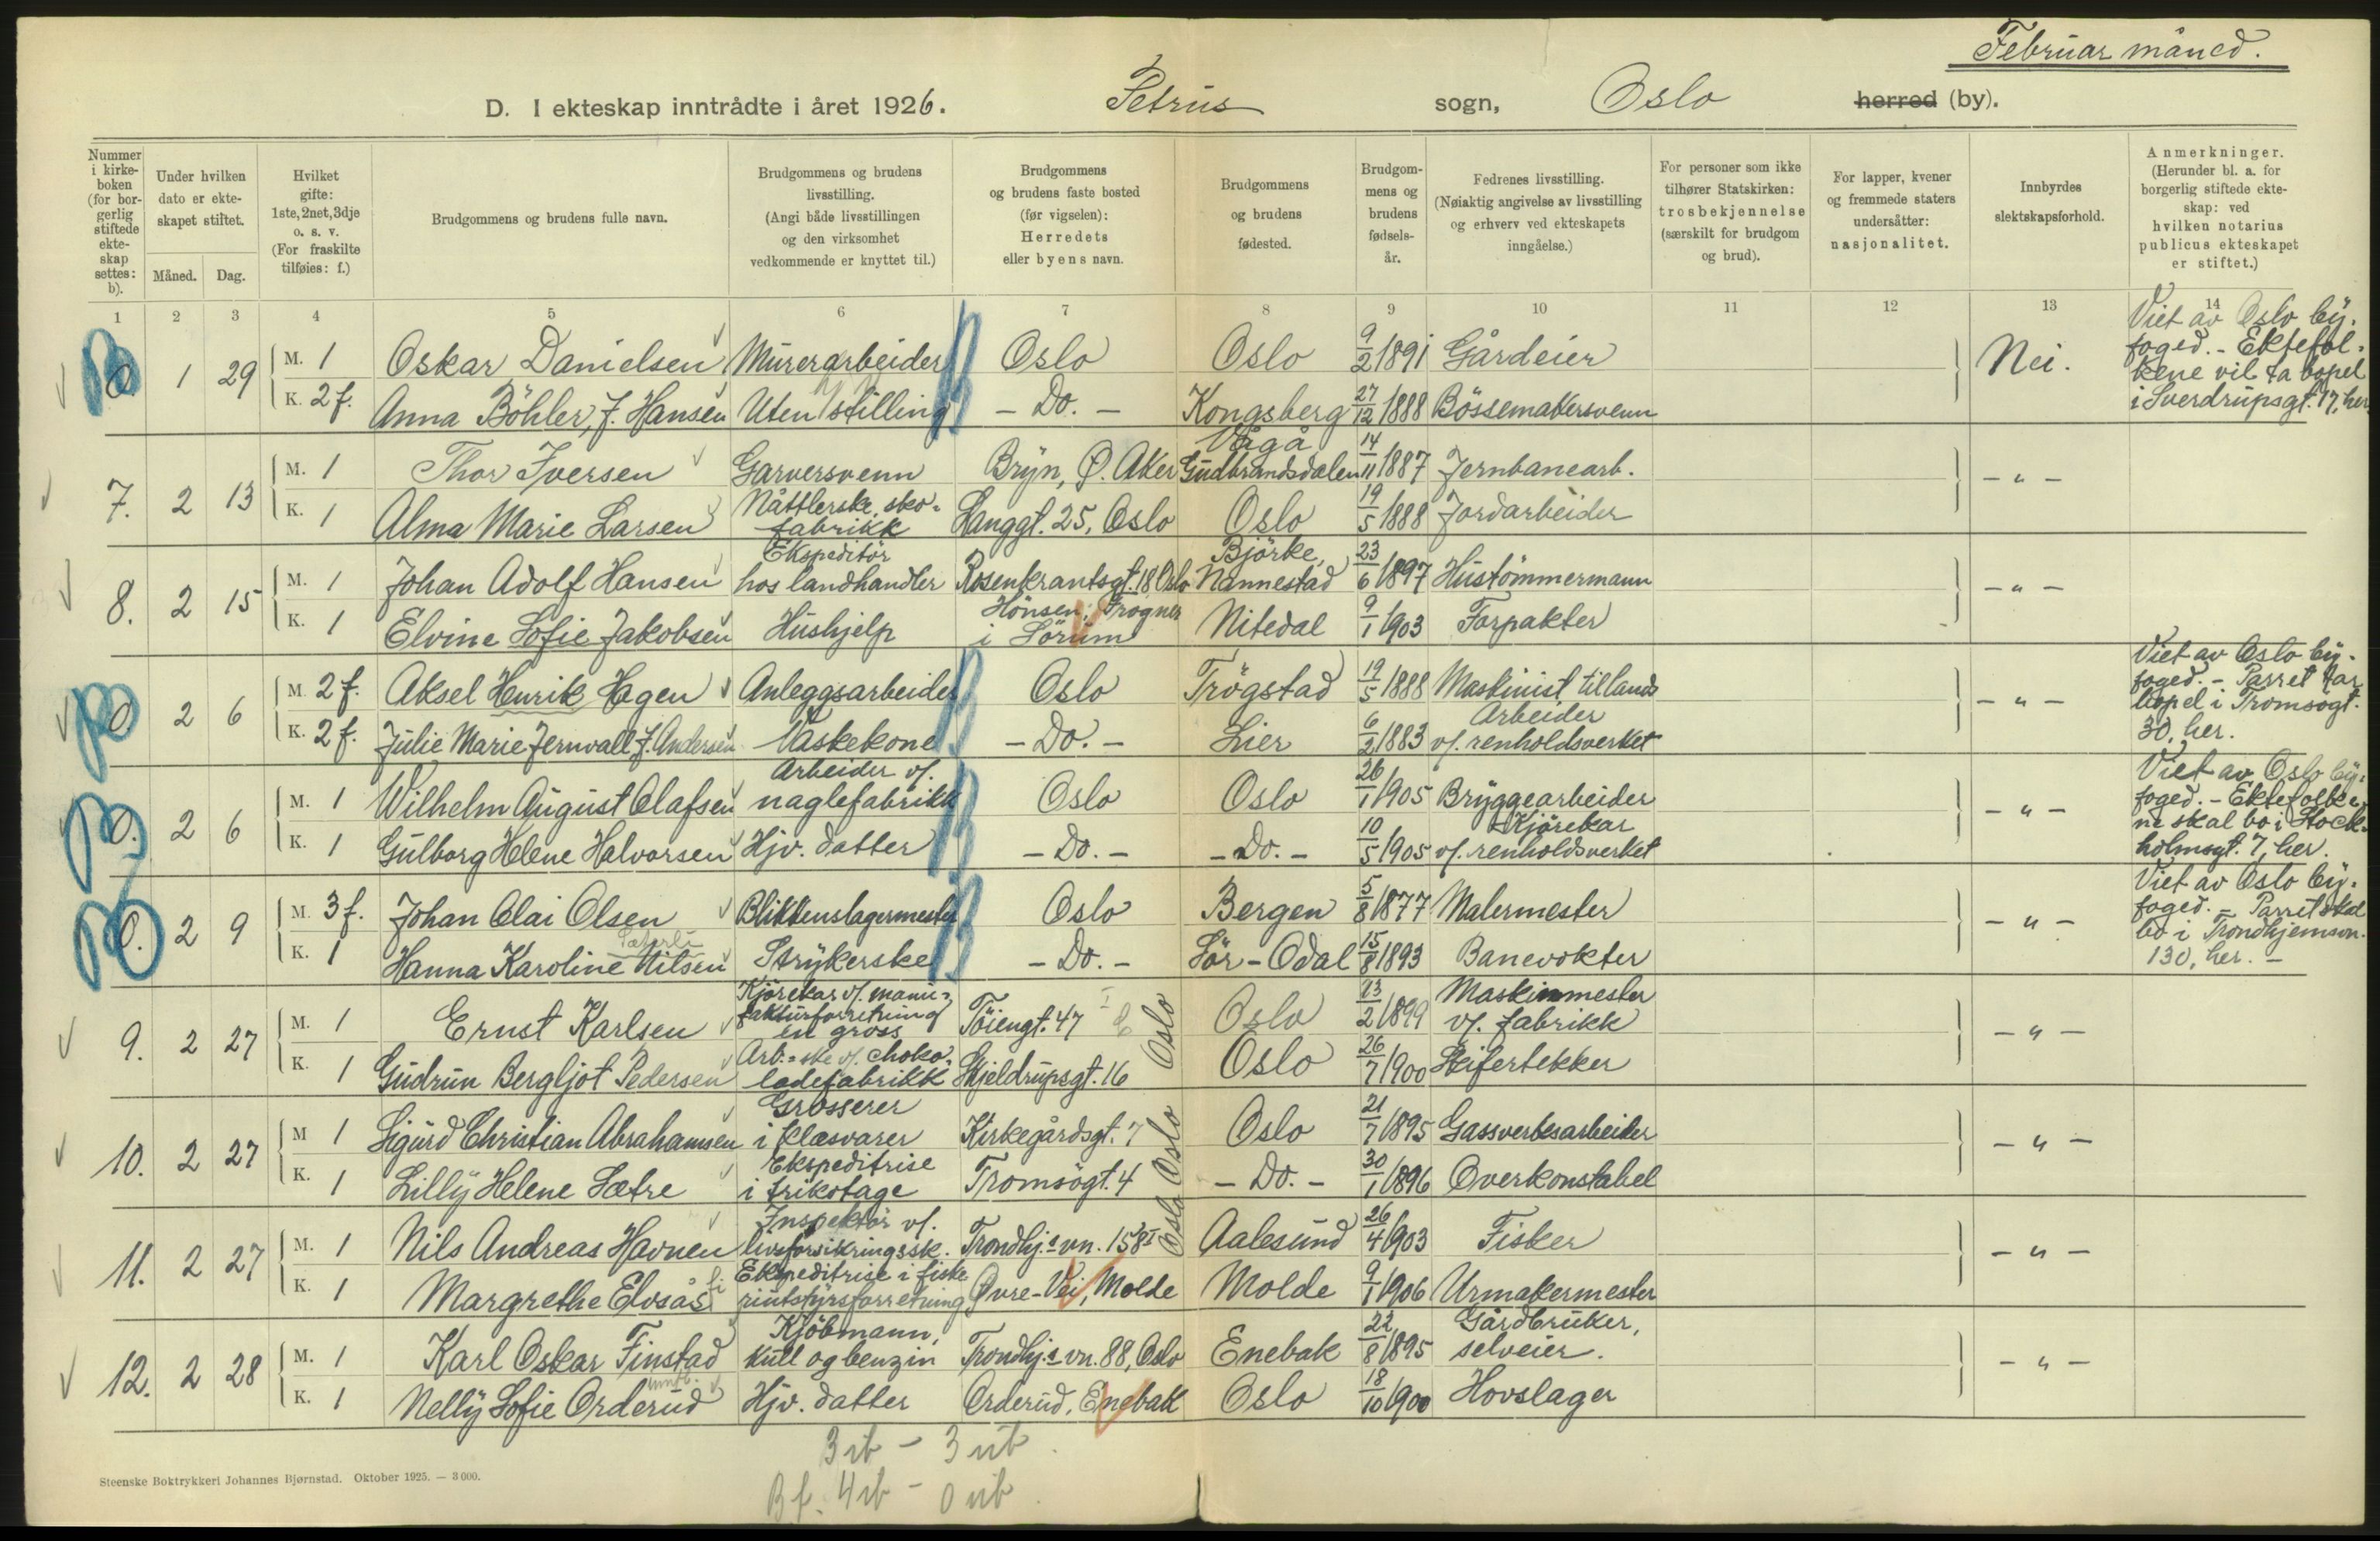 Februar måned.
D. I ekteskap inntrådte i året 1926. Petrus sogn, Oslo herred (by).
Nummer i kirkeboken (for borgerlig stiftede ekteskap settes: b).
Under hvilken dato er ekteskapet stiftet.
Måned. Dag.
Hvilket gifte: 1ste, 2net, 3dje o. s. v. (For fraskilte tilføies: f.)
Brudgommens og brudens fulle navn.
Brudgommens og brudens livsstilling. (Angi både livsstillingen og den virksomhet vedkommende er knyttet til.)
Brudgommens og brudens faste bosted (før vigselen): Herredets eller byens navn.
Brudgommens og brudens fødested.
Brudgommens og brudens fødselsår.
Fedrenes livsstilling. (Nøiaktig angivelse av livsstilling og erhverv ved ekteskapets inngåelse.)
For personer som ikke tilhører Statskirken: trosbekjennelse (særskilt for brudgom og brud).
For lapper, kvener og fremmede staters undersåtter: nasjonalitet.
Innbyrdes slektskapsforhold.
Anmerkninger. (Herunder bl. a. for borgerlig stiftede ekteskap: ved hvilken notarius publicus ekteskapet er stiftet.)
1 2 3 4 5 6 7 8 9 10 11 12 13 14
1 29 M. 1 Oskar Danielsen Murerarbeider Oslo Oslo 9/2 1891 Gårdeier Nei.
K. 2 f. Anna Böhler, f. Hansen Uten stilling - Do. - Kongsberg 27/12 1888 Bössemakersvenn
Viet av Oslo by-
foged. - Ektefol-
kene vil ta bopel
i Sverdrupsgt. 17, her
7. 2 13 M. 1 Thor Iversen Garversvenn Bryn, Ø. Aker Vågå Gudbrandsdalen 14/11 1887 Jernbanearb. - " -
K. 1 Alma Marie Larsen Nåttlerske, sko-
fabrikk Langgt. 25, Oslo Oslo 19/5 1888 Jordarbeider
8. 2 15 M. 1 Johan Adolf Hansen Ekspeditör
hos landhandler Rosenkrantsgt. 18 Oslo Björke,
Nannestad 23/6 1897 Hustömmermann - " -
K. 1 Elvine Sofie Jakobsen Hushjelp Hönsen, Frogner
i Sörum Nitedal 9/1 1903 Forpakter
2 6 M. 2 f. Aksel Henrik Hagen Anleggsarbeider Oslo Trögstad 19/5 1888 Maskinist tillands - " -
K. 2 f. Julie Marie Jernvall f. Andersen Vaskekone - Do. - Lier 6/2 1883 Arbeider
v/. renholdsverket
Viet av Oslo by-
foged. - Parret tar
bopel i Tromsøgt.
30, her.
2 6 M. 1 Wilhelm August Olafsen Arbeider v/.
naglefabrikk Oslo Oslo 26/1 1905 Bryggearbeider - " -
K. 1 Gulborg Helene Halvorsen Hjv. datter - Do. - - Do. - 10/5 1905 Kjörekar
v/. renholdsverket
Viet av Oslo by-
foged. - Ektefolke-
ne skal bo i Stock-
holmsgt. 7, her.
2 9 M. 3 f. Johan Olai Olsen Blikkenslagermester Oslo Bergen 5/8 1877 Malermester - " -
K. 1 Hanna Karoline Nilsen Strykerske - Do. - Sör-Odal 15/8 1893 Banevokter
Viet av Oslo by-
foged. - Parret skal
bo i Trondhjemsvn.
130, her. -
9. 2 27 M. 1 Ernst Karlsen Kjörekar v/. manu-
fakturforretning
en gross Töiengt. 47 Oslo Oslo 13/2 1899 Maskinmester
v/. fabrikk - " -
K. 1 Gudrun Bergljot Pedersen Arb.-ske v/. choko-
ladefabrikk Skjeldrupsgt. 16 Oslo 26/7 1900 Skifertekker
10. 2 27 M 1 Sigurd Christian Abrahamsen Grosserer
i klæsvarer Kirkegårdsgt. 7 Oslo Oslo 21/7 1895 Gassverksarbeider - " -
K. 1 Lilly Helene Sætre Ekspeditrise
i trikotage Tromsögt. 4 - Do. - 30/1 1896 Overkonstabel
11. 2 27 M. 1 Nils Andreas Havnen Inspektör v/.
livsforsikringssk. Trondhj.s vn. 158 I Oslo Aalesund 26/4 1903 Fisker - " -
K. 1 Margrethe Elvsås Ekspeditrise i fiske
riutstyrsforretning Øvre-Vei, Molde Molde 9/1 1906 Urmakermester
12. 2 28 M. 1 Karl Oskar Finstad Kjöbmann,
kull og benzin Trondhj.s vn. 88, Oslo Enebak 22/8 1895 Gårdbruker,
selveier. - " -
K. 1 Nelly Sofie Orderud Hjv. datter Orderud, Enebak Oslo 18/10 1900 Hovslager
3 ib - 3 uib
Bf. 4 ib - 0 uib
Steenske Boktrykkeri Johannes Bjørnstad. Oktober 1925. — 3 000.